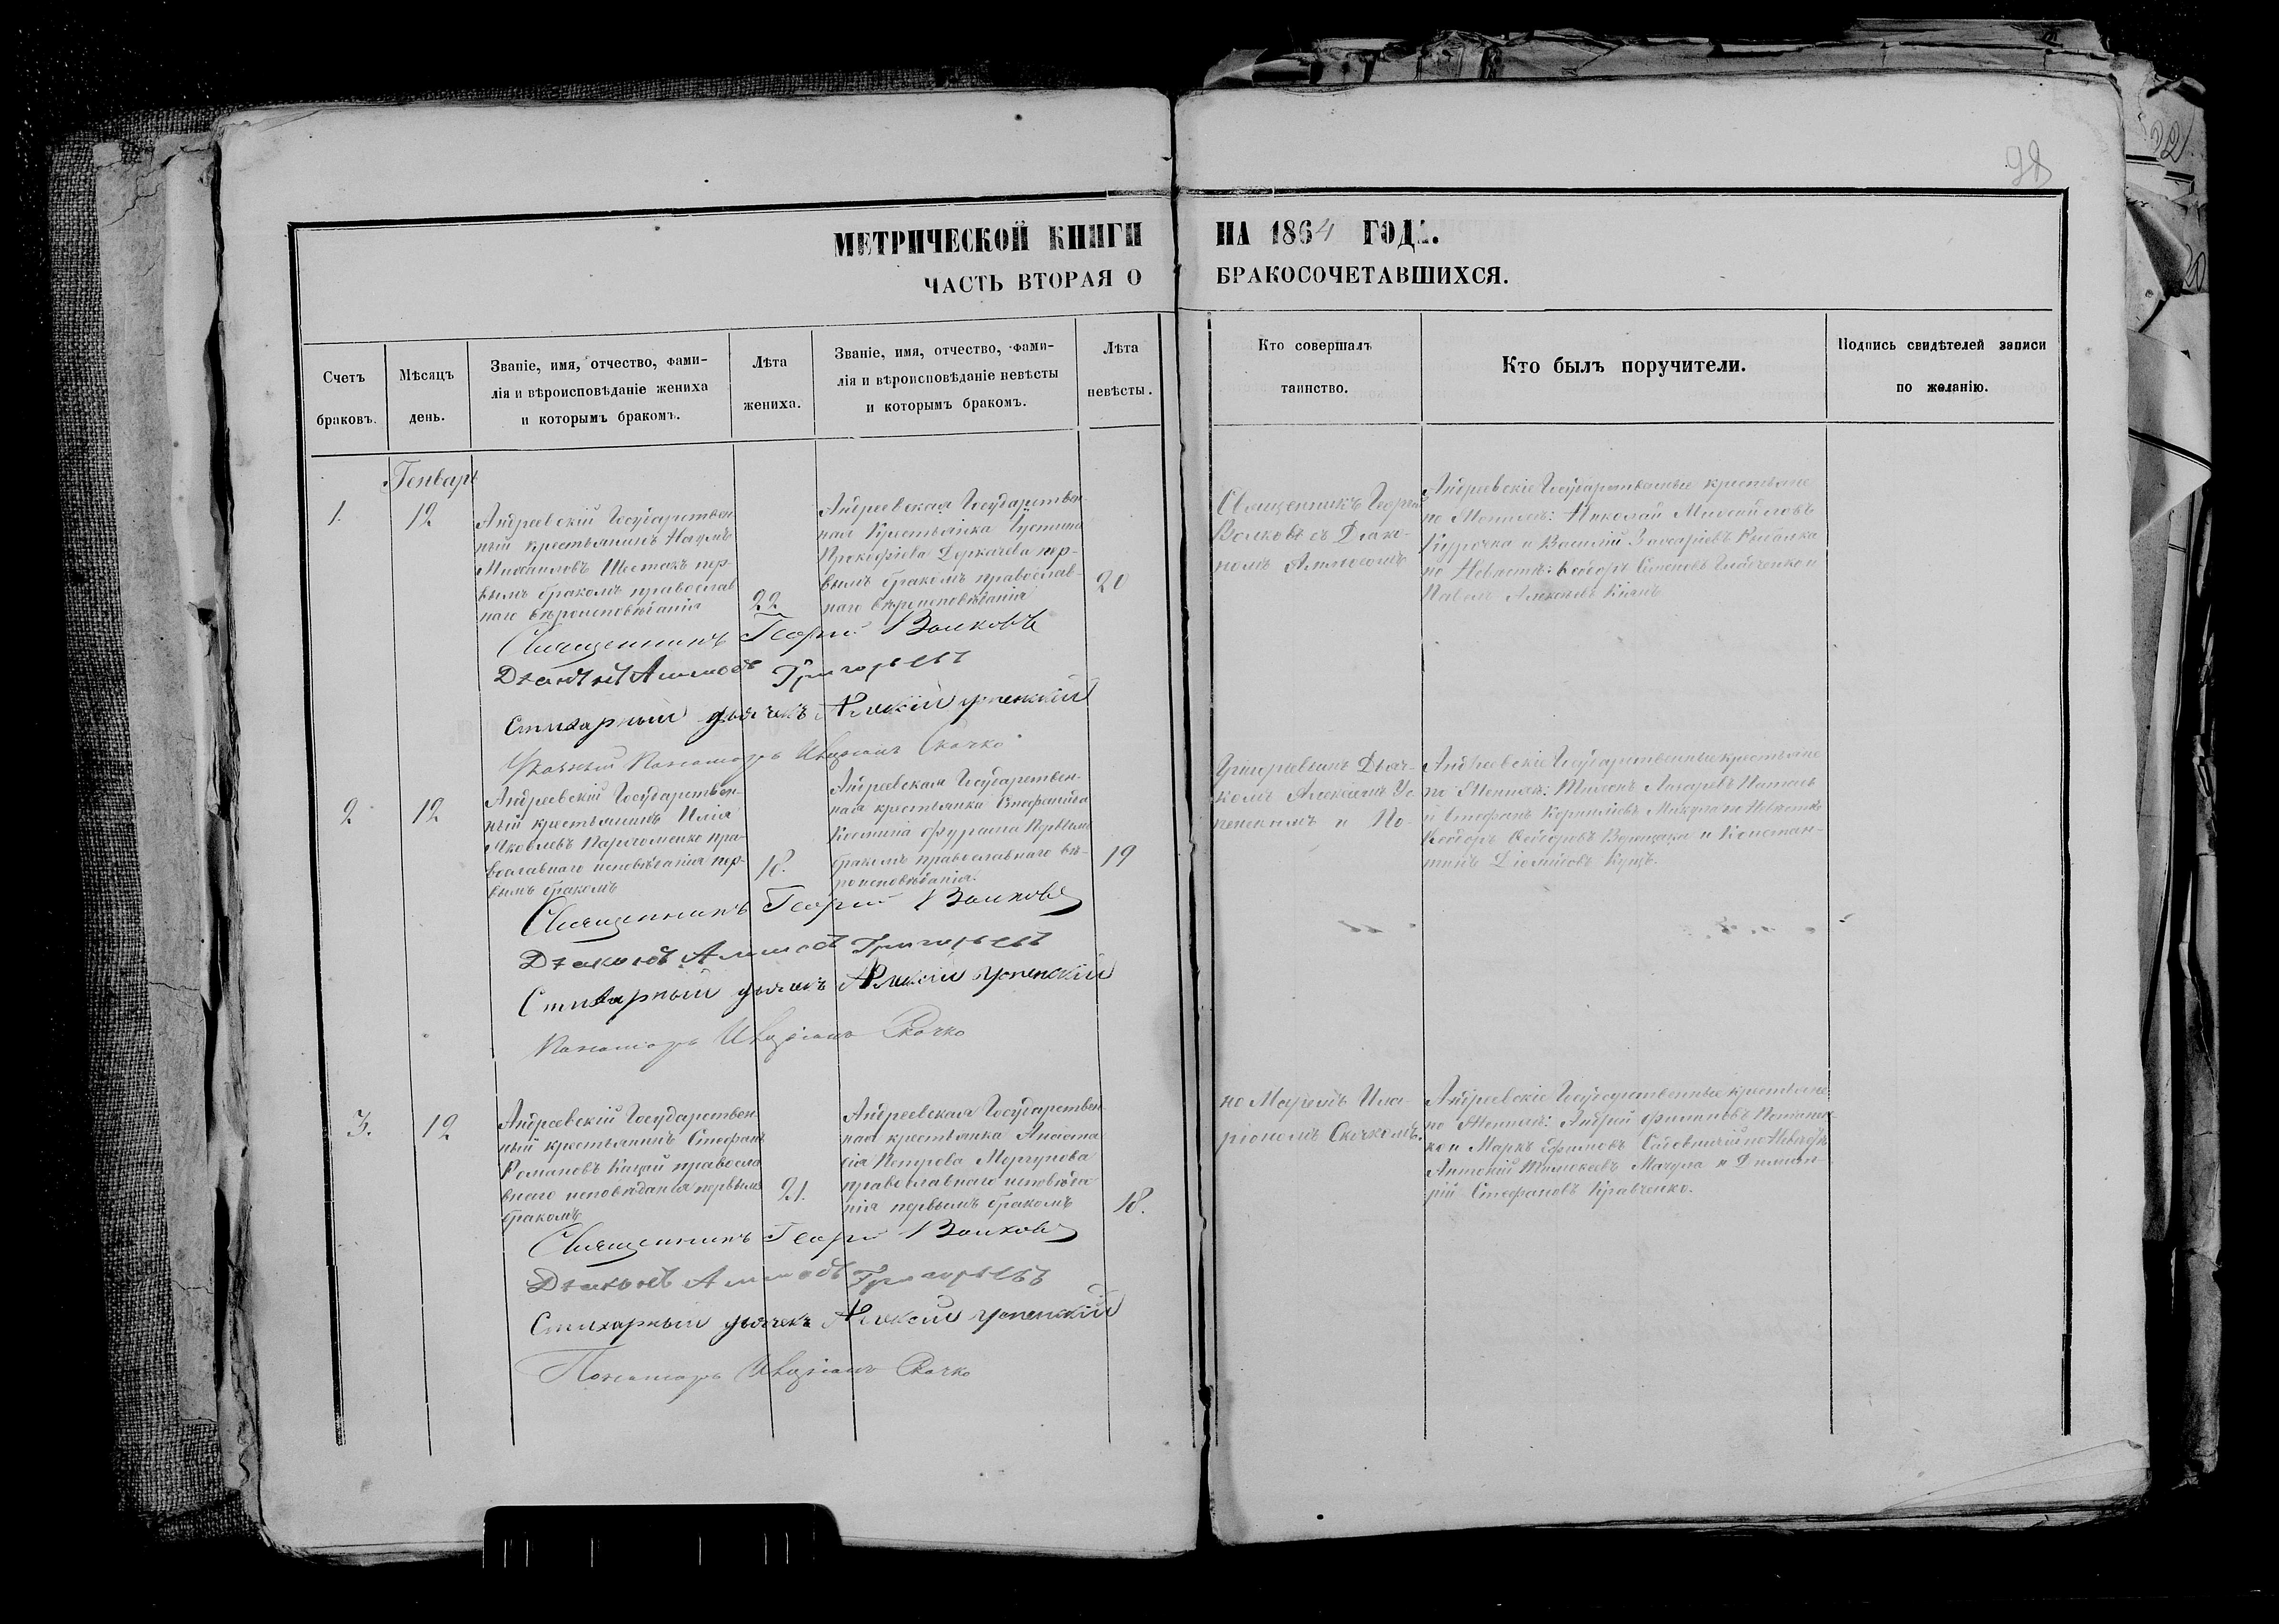 98
МЕТРИЧЕСКОЙ КНИГИ НА 1864 ГОДА.
ЧАСТЬ ВТОРАЯ О БРАКОСОЧЕТАВШИХСЯ.
Счетъ браковъ.
Мѣсяцъ день.
Званіе, имя, отчество, фами-
лія и вѣроисповѣданіе жениха
и которымъ бракомъ.
Лѣта жениха.
Званіе, имя, отчество, фами-
лія и вѣроисповѣданіе невѣсты
и которымъ бракомъ.
Лѣта невѣсты.
Кто совершалъ таинство.
Кто былъ поручители.
Подпись свидѣтелей записи по желанію.
Генварь
1.
12
Андреевскій Государствен
ный крестьянинъ Наумъ
Михаиловъ Шостакъ пер-
вымъ бракомъ православ
наго вѣроисповѣданія
22
Андреевская Государствен
ная Крестьянка
Прокофіева пер-
вымъ бракомъ православ-
наго вѣроисповѣданія
20
Священникъ Георгій
Волковъ съ Діако-
номъ
Андреевскіе Государственные крестьяне
по Женихѣ: Николай Михайловъ
Курочка и Василій Захаріевъ
по Невѣстѣ: Ѳеодоръ Семеновъ и
Павелъ Алексѣевъ
Священникъ Георгій Волковъ
Діаконъ Григорьевъ
Стихарный дьячекъ Алексій Успенскій
Пономарь Иларіонъ Скочко
2
12
Андреевскій Государствен-
ный крестьянинъ Илія
Яковлевъ Пархоменко пра-
вославнаго исповѣданія пер-
вымъ бракомъ
18.
Андреевская Государствен-
ная крестьянка Стефанида
Космина Первымъ
бракомъ православнаго вѣ-
роисповѣданія.
19
Григорьевымъ Дьяч-
комъ Алексіемъ Ус
пенскимъ и По-
Андреевскіе Государственные крестьяне
по Женихѣ: Лазаревъ
и Стефанъ Корниліевъ Микула по Невѣстѣ
Ѳеодоръ Ѳеодоровъ и Констан-
тинъ Діомидовъ Куцъ.
Священникъ Георгій Волковъ
Діаконъ Григорьевъ
Стихарный дьячекъ Алексій Успенскій
Пономарь Иларіонъ Скочко
3.
12
Андреевскій Государствен
ный крестьянинъ Стефанъ
Романовъ Кацай правосла
внаго исповѣданія первымъ
бракомъ
21.
Андреевская Государствен
ная крестьянка Анаста
сія Петрова Моргунова
православнаго исповѣда
нія первымъ бракомъ
18.
номаремъ Ила-
ріономъ Скочкомъ.
Андреевскіе Государственные крестьяне
по Женихѣ: Андрей Филиповъ
ко и Маркъ Ефимовъ по Невѣстѣ
Антоній Тимоѳеевъ Мачула и Димит-
рій Стефановъ Кравченко.
Священникъ Георгій Волковъ
Діаконъ Григорьевъ
Стихарный дьячекъ Алексій Успенскій
Пономарь Иларіонъ Скочко